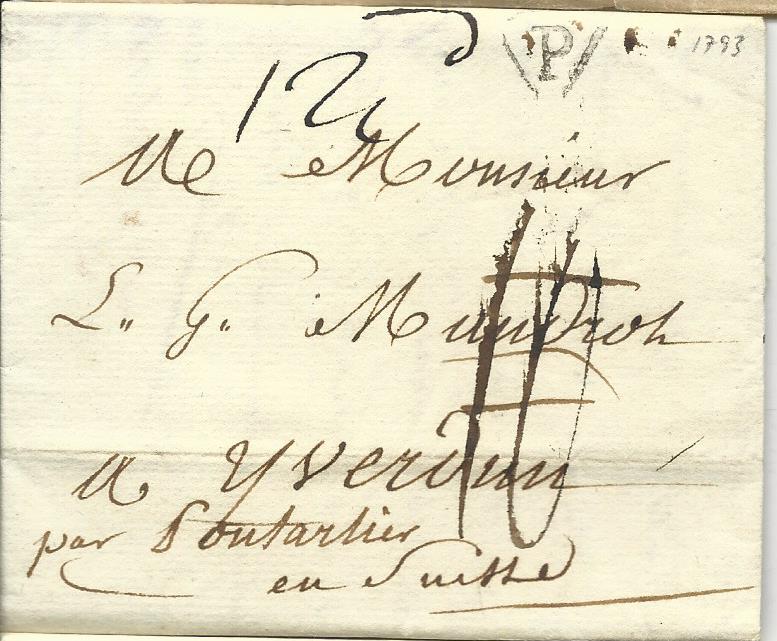 P 1793
12
A Monsieur
L." G." Mandrot
a Yverdun
par Pontarlier
en Suisse